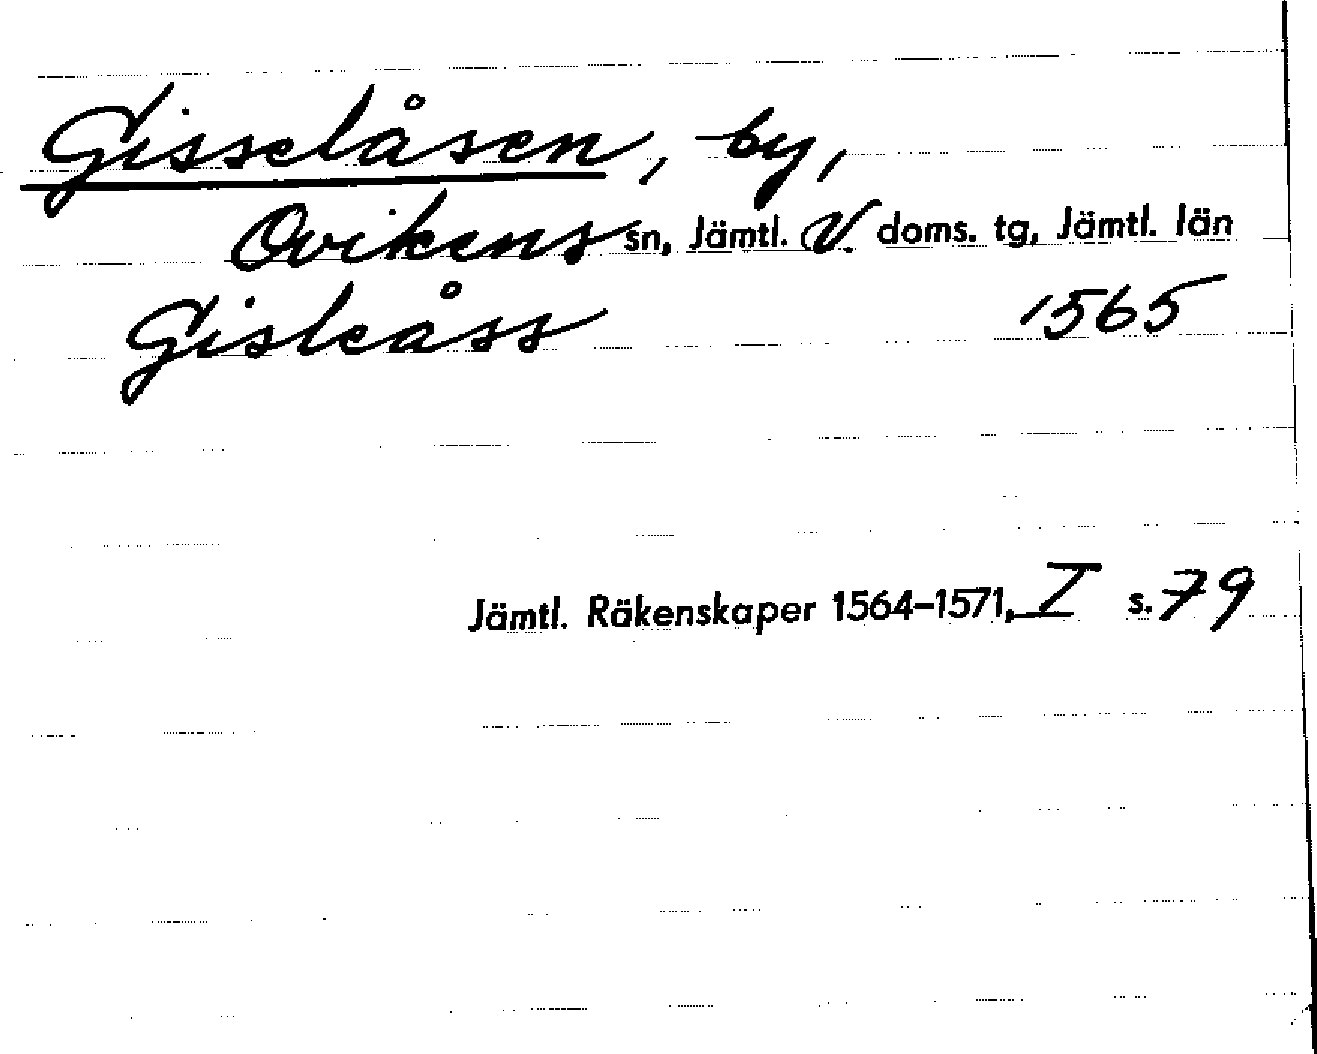 Gisselåsen, by,
Ovikens sn, Jämtl. V. doms. tg, Jämtl. län
Gisleåss 1565
Jämtl. Räkenskaper 1564-1571, I s. 79